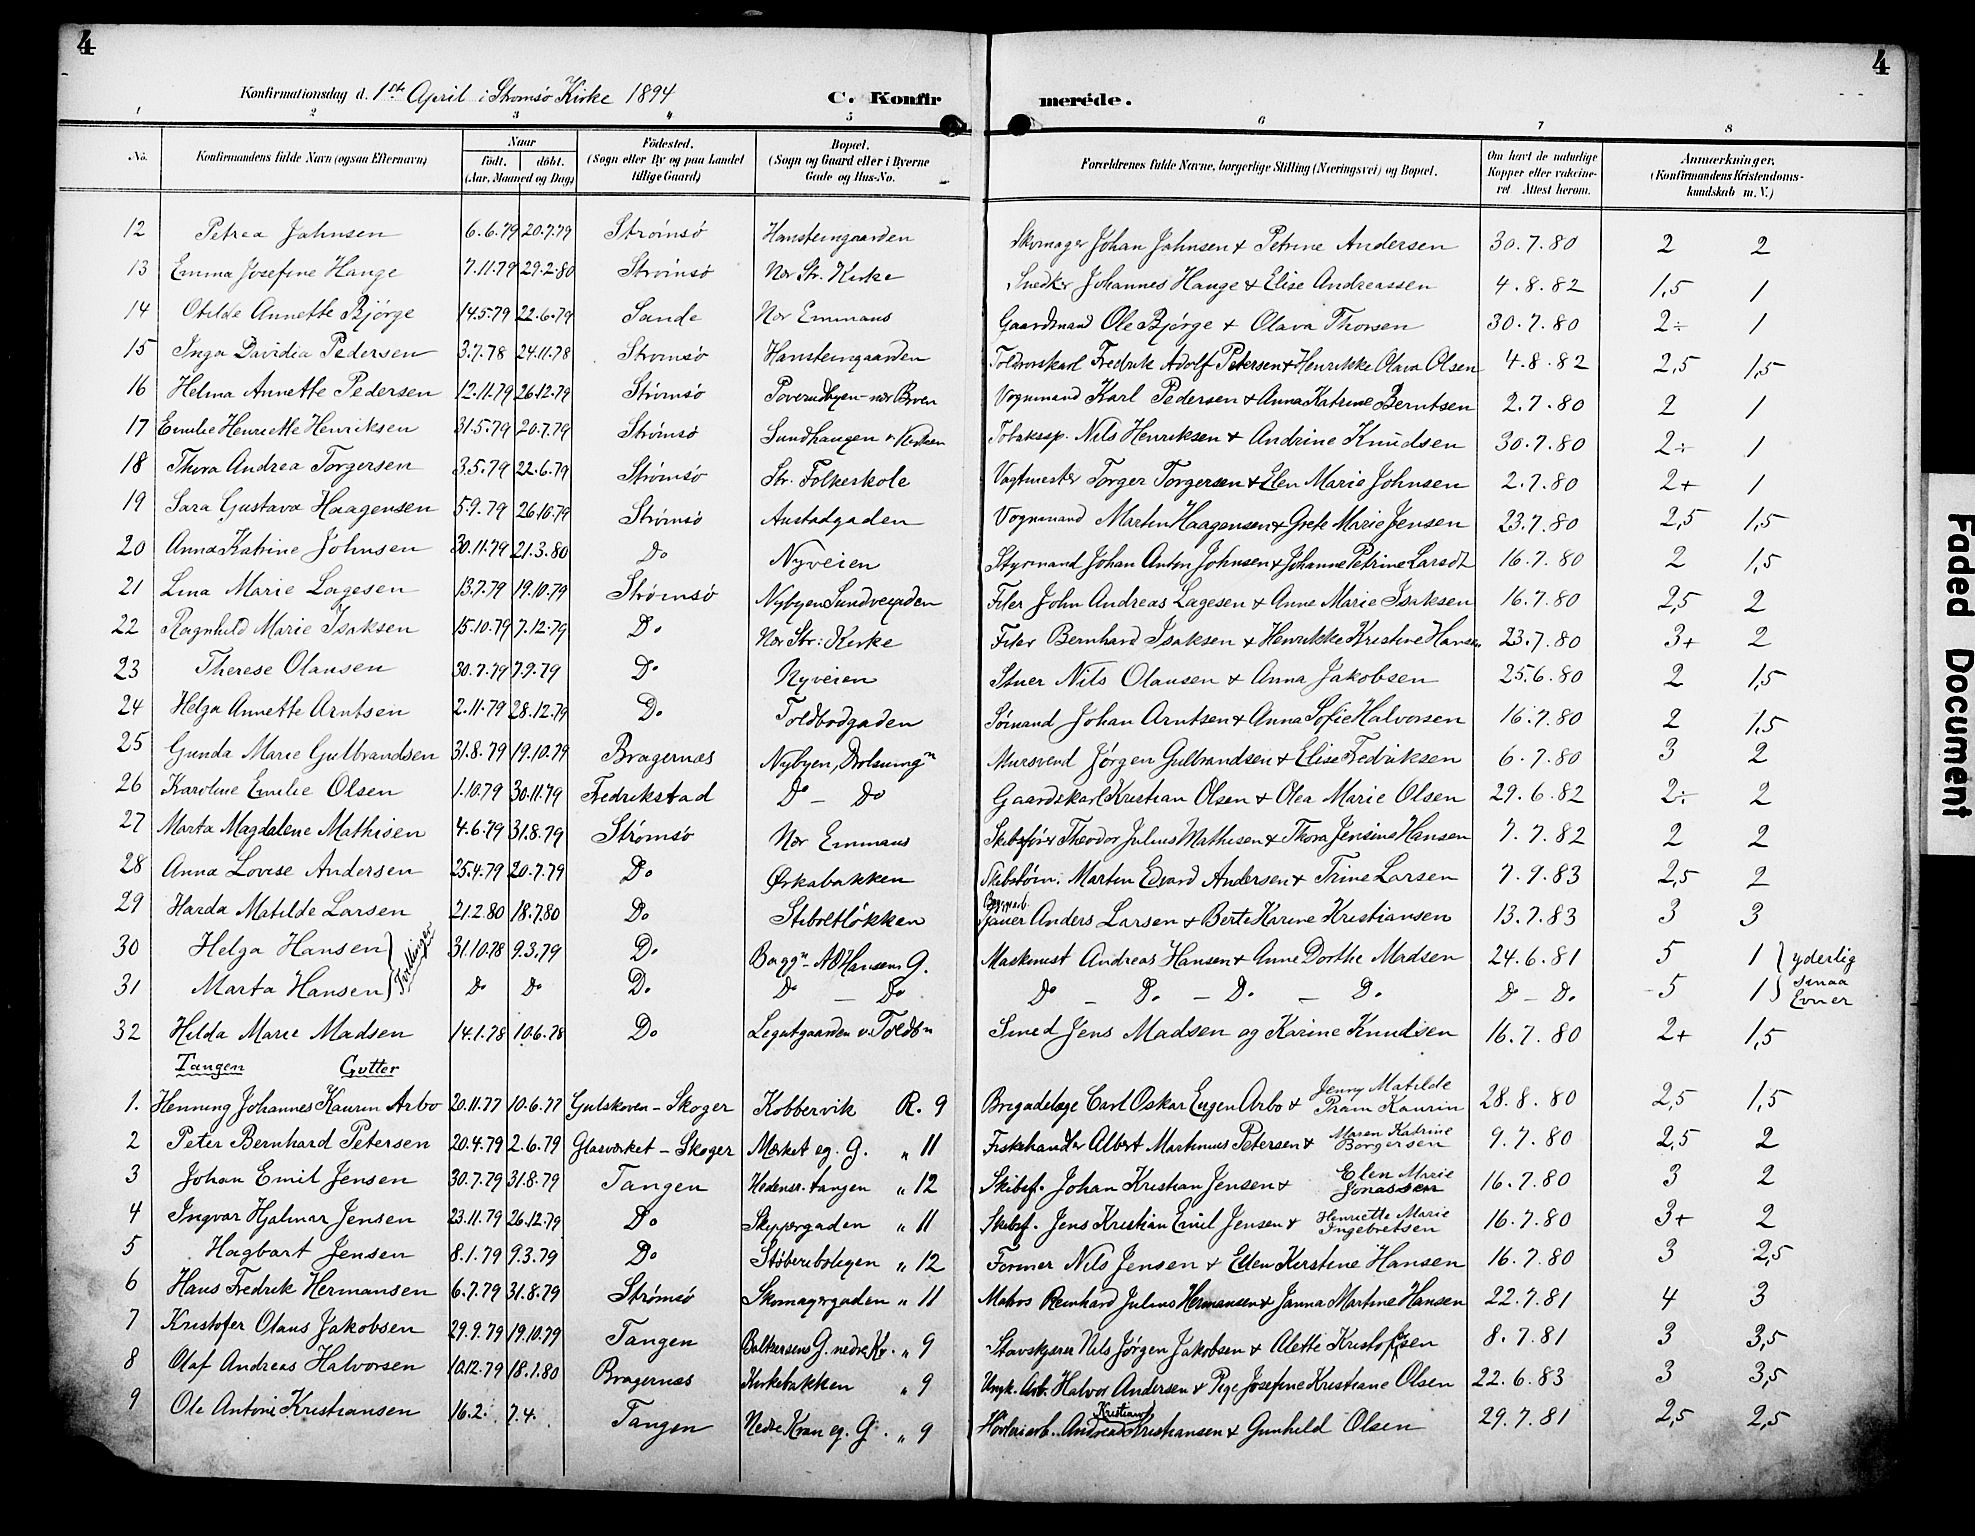 4
4
Konfirmationsdag d. 1ste April i Stromsö Kirke 1894
C. Konfirmerede.
1 2 3 4 5 6 7 8
No. Konfirmandens fulde Navn (ogsaa Efternavn) Naar födt. döbt. (Aar, Maaned og Dag) Födested. (Sogn eller By og paa Landet tillige Gaard) Bopæl. (Sogn og Gaard eller i Byerne Gade og Hus-No. Forældrenes fulde Navne, borgerlige Stilling (Næringsvei) og Bopæl. Om havt de naturlige Kopper eller vaccineret Attest herom. Anmærkninger. (Konfirmandens Kristendomskundskab m. V.)
12 Petrea Johnsen 6.6.79 20.7.79 Strömsö Hansteengaarden Skomager Johan Johnsen & Petrine Andersen 30.7.80 2 2
13 Emma Josefine Hauge 7.11.79 29.2.80 Strömsö Nær Str. Kirke Snedker Johannes Hauge & Elise Andreassen 4.8.82 1,5 1
14 Otilde Annette Bjørge 14.5.79 22.6.79 Sande Nær Emmaus Gaardmand Ole Bjørge & Olava Thorsen 30.7.80 2÷ 1
15 Inga Davidia Pedersen 3.7.78 24.11.78 Stromsö Hansteengaarden Fredrik Adolf Petersen & Henrikke Olava Olsen 4.8.82 2,5 1,5
16 Helma Annette Pedersen 12.11.79 26.12.79 Strømsö nær Broen Vognmand Karl Pedersen & Anna Katrine Berntsen 2.7.80 2 1
17 Emilie Henriette Henriksen 31.5.79 20.7.79 Strømsö Sundhaugen v. Kirken Tobaksp. Nils Henriksen & Andrine Knudsen 30.7.80 2÷ 1
18 Thora Andrea Torgersen 3.5.79 22.6.79 Strømsö Str. Folkeskole Vagtmester Torger Torgersen & Elen Marie Johnsen 2.7.80 2+ 1
19 Sara Gustava Haagensen 5.9.79 26.10.79 Strømsö Austadgaden Vognmand Martin Haagensen & Grete Marie Jensen 23.7.80 2,5 1,5
20 Anna Katrine Johnsen 30.11.79 21.3.80 Do Nyveien Styrmand Johan Anton Johnsen & Johanne Petrine Larsdt 16.7.80 2 1,5
21 Lina Marie Lagesen 13.7.79 19.10.79 Strømsö Nybyen Filer John Andreas Lagesen & Anne Marie Isaksen 16.7.80 2,5 2
22 Ragnhild Marie Isaksen 15.10.79 7.12.79 Do Nær Str: Kirke Filer Bernhard Isaksen & Henrikke Kristine Hansen 23.7.80 3+ 2
23 Therese Olausen 30.7.79 7.9.79 Do Nyveien Stuer Nils Olausen & Anna Jakobsen 25.6.80 2 1,5
24 Helga Annette Arntsen 2.11.79 28.12.79 Do Toldbodgaden Sömand Johan Arntsen & Anna Sofie Halvorsen 16.7.80 2 1,5
25 Gunda Marie Gulbrandsen 31.8.79 19.10.79 Bragernæs Nybyen, Mursvend Jørgen Gulbrandsen & Elise Fredriksen 6.7.80 3 2
26 Karoline Emilie Olsen 1.10.79 30.11.79 Fredrikstad Do – Do Gaardskarl Kristian Olsen & Olea Marie Olsen 29.6.82 2÷ 2
27 Marta Magdalene Mathisen 4.6.79 31.8.79 Strømsö Nær Emmaus Skibsfører Theodor Julius Mathisen & Thora Jensine Hansen 7.7.82 2 2
28 Anna Lovise Andersen 25.4.79 20.7.79 Do Ørkabakken Skibstöm. Martin Edvard Andersen & Trine Larsen 7.9.83 2,5 2
29 Harda Matilde Larsen 21.2.80 18.7.80 Do Stiboltløkken Anders Larsen & Berte Karine Kristiansen 13.7.83 3 3
30 Helga Hansen 31.10.78 9.3.79 Do Bragn – A O Hansens G. Maskinist Andreas Hansen & Anne Dorthe Madsen 24.6.81 5 1 yderlig
Tvillinger
31 Marta Hansen Do Do Do Do – Do Do – Do – Do – Do Do – Do 5 1 smaa Evner
32 Hilda Marie Madsen 14.1.78 10.6.78 Do Legatgaarden v. Toldbn Smed Jens Madsen og Karine Knudsen 16.7.80 2+ 1,5
Tangen Gutter
1. Henning Johannes Kaurin Arbo 20.11.77 10.6.77 Gulskoven – Skoger Kobbervik R. 9 Brigadelæge Carl Oskar Eugen Arbo & Jenny Matilde Pram Kaurin 28.8.80 2,5 1,5
2 Peter Bernhard Petersen 20.4.79 2.6.79 Glasværket – Skoger Mærket eg. G. „ 11 Fiskehandler Albert Martinius Petersen & Maren Katrine Borgersen 9.7.80 2,5 2
3 Johan Emil Jensen 30.7.79 31.8.79 Tangen Hedensr. tangen „ 12 Skibsf. Johan Kristian Jensen & Elen Marie Jonassen 16.7.80 3 2
4 Ingvar Hjalmar Jensen 23.11.79 26.12.79 Do Skippergaden „ 11 Skibsf. Jens Kristian Emil Jensen & Henriette Marie Ingebretsen 16.7.80 3+ 2
5 Hagbart Jensen 8.1.79 9.3.79 Do Støberiboligen „ 12 Former Nils Jensen & Ellen Kirstine Hansen 16.7.80 3 2,5
6 Hans Fredrik Hermansen 6.7.79 31.8.79 Strømsö Skomagergaden „ 11 Matros Reinhard Julius Hermansen & Janna Martine Hansen 22.7.81 4 3
7 Kristofer Olaus Jakobsen 29.9.79 19.10.79 Tangen Baltzersens G. nedre Kr. „ 9 Stavskjærer Nils Jørgen Jakobsen & Alette Kristoffersen 8.7.81 3 3,5
8 Olaf Andreas Halvorsen 10.12.79 18.1.80 Bragernæs Kirkebakken „ 9 Ungk. Arb. Halvor Andersen & Pige Josefine Kristiane Olsen 22.6.83 3 3,5
9 Ole Antoni Kristiansen 16.2. 7.4. Tangen Nedre Kran eg. G. „ 9 Høvleriarb. Andreas Kristian Kristiansen & Gunhild Olsen 29.7.81 2,5 2,5
Faded Document